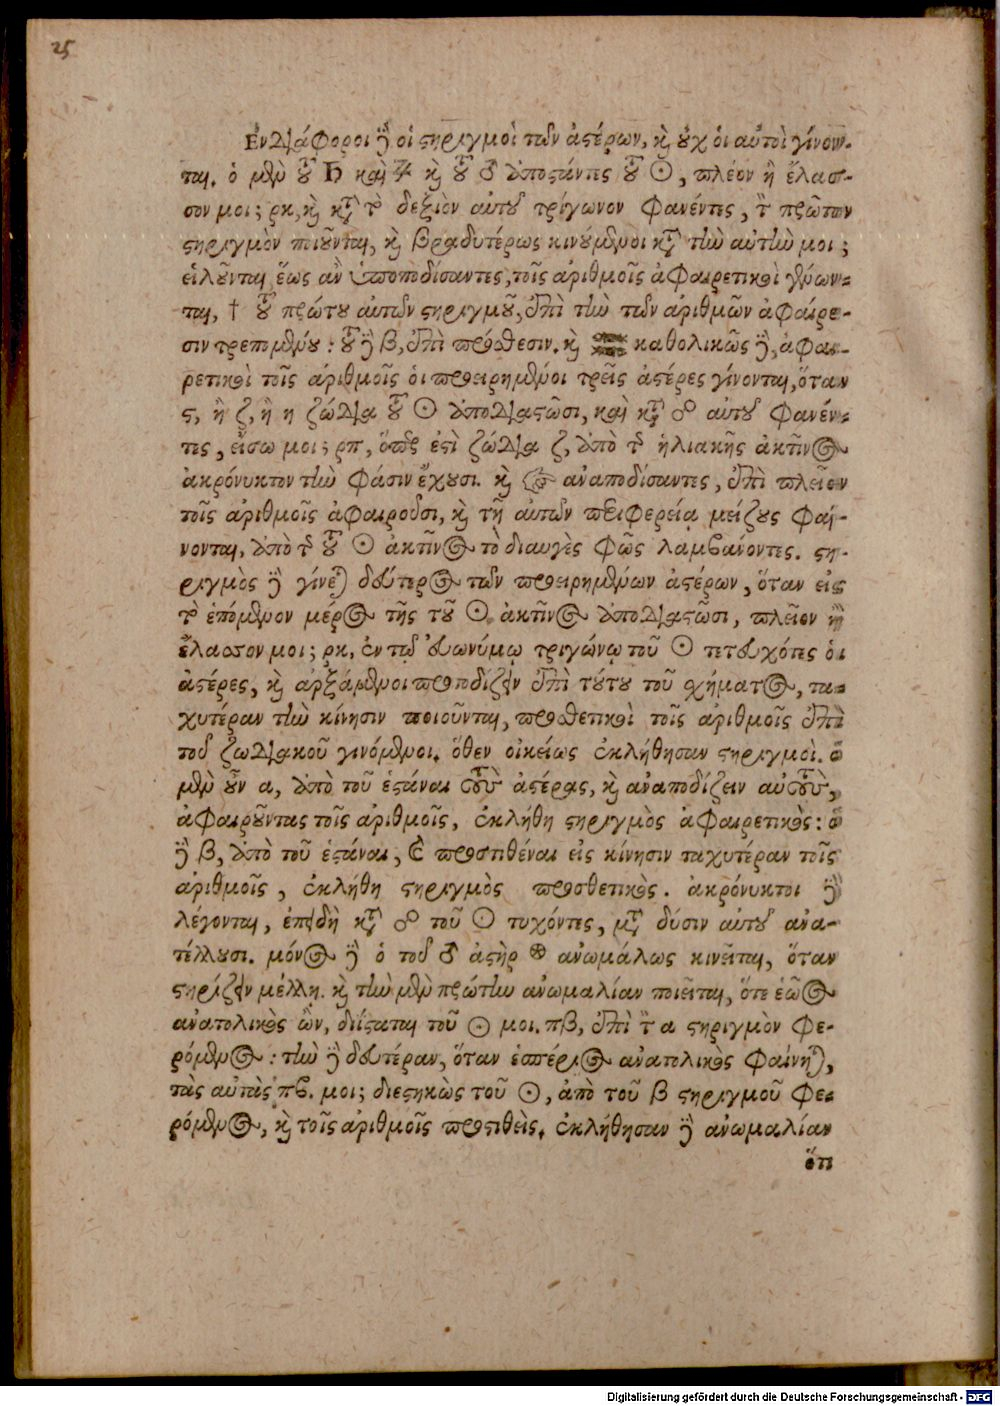 25
Ἐνδιάφοροι δὲ οἱ στηριγμοὶ τῶν ἀστέρων, καὶ οὐχ οἱ αὐτοὶ γίνον-
ται. ὁ μὲν τοῦ ♄ καὶ ♃ καὶ τοῦ ♂ ἀποστάντες τοῦ ☉, πλέον ἢ ἔλασ-
σον μοι; ρκ, καὶ κατὰ τὸ δεξιὸν αὐτοῦ τρίγωνον φανέντες, τὸ πρῶτον
στηριγμὸν ποιοῦνται, καὶ βραδυτέρως κινούμενοι κατὰ τὴν αὐτὴν μοι;
εἱλοῦνται, ἕως ἂν ὑποποδίσαντες, τοῖς ἀριθμοῖς ἀφαιρετικοὶ γένων-
ται, † τοῦ πρώτου αὐτῶν στηριγμοῦ, ἐπὶ τὴν τῶν ἀριθμῶν ἀφαίρε-
σιν τρεπομένου: τοῦ δὲ β, ἐπὶ πρόσθεσιν. καὶ καθολικῶς δὲ, ἀφαι-
ρετικοὶ τοῖς ἀριθμοῖς οἱ προειρημένοι τρεῖς ἀστέρες γίνονται, ὅταν
ς, ἢ ζ, ἢ η ζώδια τοῦ ☉ ἀποδιαστῶσι, καὶ κατὰ ☍ αὐτοῦ φανέν-
τες, εἴσω μοι; ρπ, ὅπερ ἐστὶ ζώδια ζ, ἀπὸ τῆς ἡλιακῆς ἀκτῖνος
ἀκρόνυκτον τὴν φάσιν ἔχουσι. καὶ ☞ ἀναποδίσαντες, ἐπὶ πλεῖον
τοῖς ἀριθμοῖς ἀφαιροῦσι, καὶ τῇ αὐτῶν περιφερείᾳ μείζους φαί-
νονται, ἀπὸ τῆς τοῦ ☉ ἀκτῖνος τὸ διαυγὲς φῶς λαμβάνοντες. στη-
ριγμὸς δὲ γίνεται δεύτερος τῶν προειρημένων ἀστέρων, ὅταν εἰς
τὸ ἑπόμενον μέρος τῆς τοῦ ☉ ἀκτῖνος ἀποδιαστῶσι, πλεῖον ἢ
ἔλασσον μοι; ρκ, ἐν τῷ εὐωνύμῳ τριγώνῳ τοῦ ☉ τετευχότες οἱ
ἀστέρες, καὶ ἀρξάμενοι προποδίζειν ἐπὶ τούτου τοῦ σχήματος, τα-
χυτέραν τὴν κίνησιν ποιοῦνται, προσθετικοὶ τοῖς ἀριθμοῖς ἐπὶ
τοῦ ζωδιακοῦ γινόμενοι. ὅθεν οἰκείως ἐκλήθησαν στηριγμοί. ὁ
μὲν οὖν α, ἀπὸ τοῦ ἑστάναι τοὺς ἀστέρας, καὶ ἀναποδίζειν αὐτοὺς,
ἀφαιροῦντας τοῖς ἀριθμοῖς, ἐκλήθη στηριγμὸς ἀφαιρετικός: ὁ
δὲ β, ἀπὸ τοῦ ἑστάναι, καὶ προστιθέναι εἰς κίνησιν ταχυτέραν τοῖς
ἀριθμοῖς, ἐκλήθη στηριγμὸς προσθετικός. ἀκρόνυκτοι δὲ
λέγονται, ἐπειδὴ κατὰ ☍ τοῦ ☉ τυχόντες, μετὰ δύσιν αὐτοῦ ἀνα-
τέλλουσι. μόνος δὲ ὁ τοῦ ♂ ἀστὴρ ⊛ ἀνωμάλως κινεῖται, ὅταν
στηρίζειν μέλλῃ. καὶ τὴν μὲν πρώτην ἀνωμαλίαν ποιεῖται, ὅτε ἑῷος
ἀνατολικὸς ὢν, διίσταται τοῦ ☉ μοι. πβ, ἐπὶ τὸ α στηριγμὸν φε-
ρόμενος: τὴν δὲ δευτέραν, ὅταν ἑσπέριος ἀνατολικὸς φαίνηται,
τὰς αὐτὰς πβ. μοι; διεστηκὼς τοῦ ☉, ἀπὸ τοῦ β στηριγμοῦ φε-
ρόμενος, καὶ τοῖς ἀριθμοῖς προστιθείς. ἐκλήθησαν δὲ ἀνωμαλίαι
ὅτι
Digitalisierung gefördert durch die Deutsche Forschungsgemeinschaft - DFG